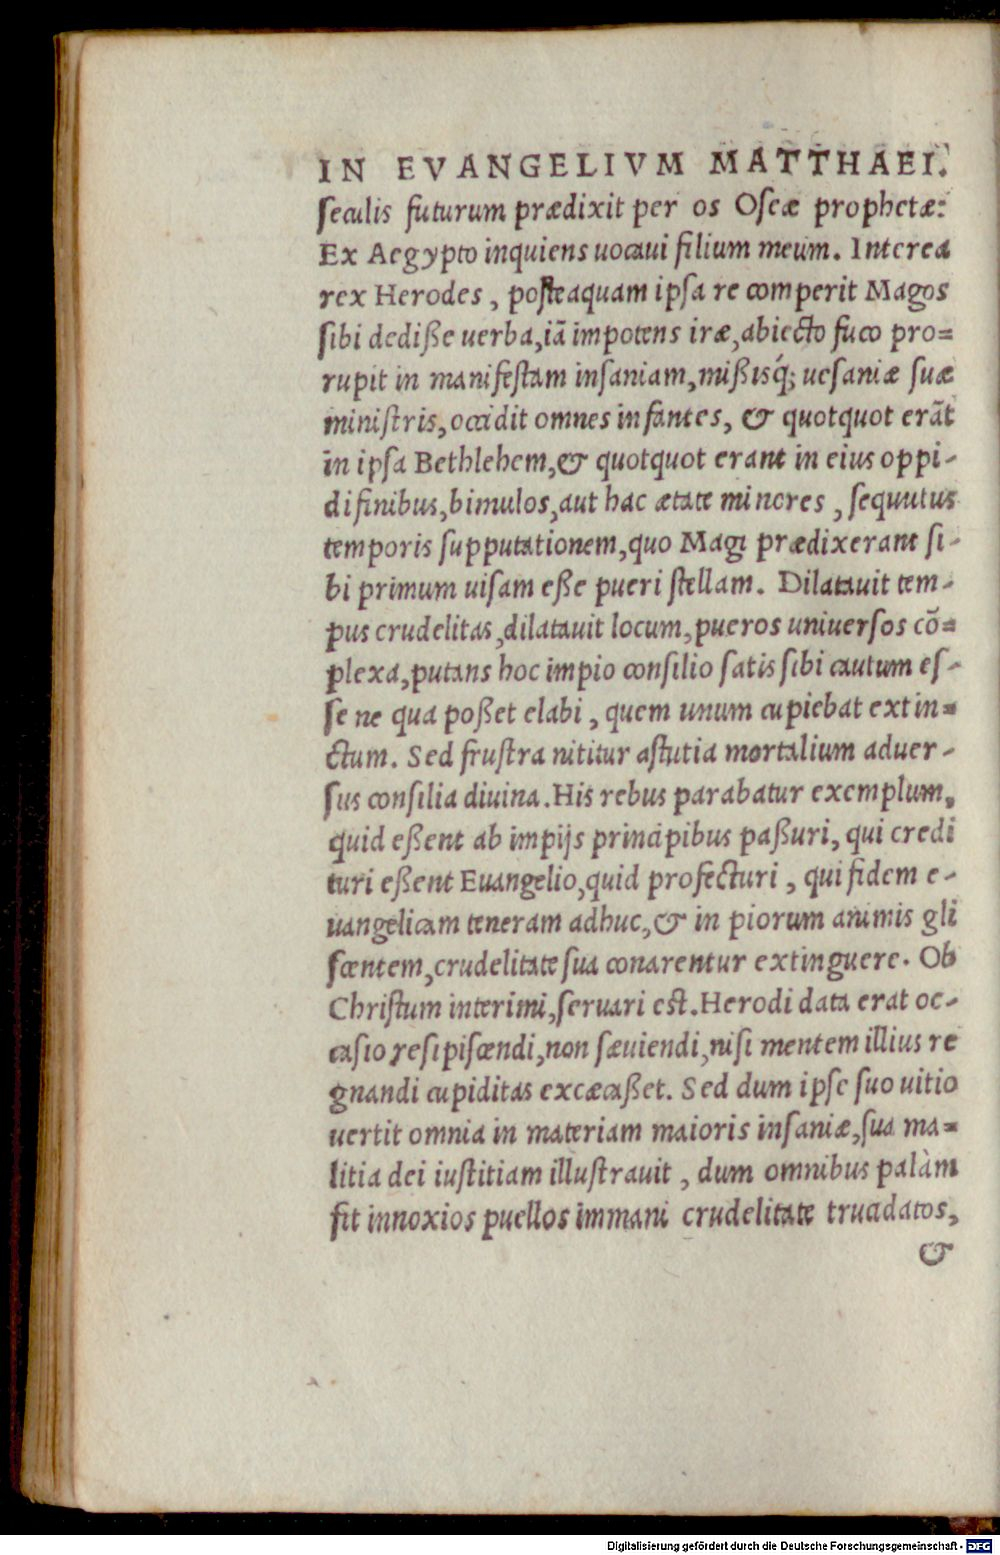 IN EVANGELIVM MATTHAEI.
seculis futurum prædixit per os Oseæ prophetæ:
Ex Aegypto inquiens uocaui filium meum. Interea
rex Herodes, posteaquam ipsa re comperit Magos
sibi dediße uerba,iã impotens iræ,abiecto fuco pro=
rupit in manifestam insaniam,mißisq́; uesaniæ suæ
ministris,occidit omnes infantes, & quotquot erãt
in ipsa Bethlehem,& quotquot erant in eius oppi-
di finibus,bimulos,aut hac ætate minores, sequutus
temporis supputationem,quo Magi prædixerant si-
bi primum uisam eße pueri stellam. Dilatauit tem-
pus crudelitas,dilatauit locum,pueros uniuersos cõ=
plexa,putans hoc impio consilio satis sibi cautum es-
se ne qua poßet elabi, quem unum cupiebat extin=
ctum. Sed frustra nititur astutia mortalium aduer-
sus consilia diuina.His rebus parabatur exemplum,
quid eßent ab impijs principibus paßuri, qui credi
turi eßent Euangelio,quid profecturi, qui fidem e-
uangelicam teneram adhuc,& in piorum animis gli
scentem,crudelitate sua conarentur extinguere. Ob
Christum interimi,seruari est.Herodi data erat oc-
casio resipiscendi,non sæuiendi,nisi mentem illius re
gnandi cupiditas excæcaßet. Sed dum ipse suo uitio
uertit omnia in materiam maioris insaniæ,sua ma=
litia dei iustitiam illustrauit, dum omnibus palàm
fit innoxios puellos immani crudelitate trucidatos,
&
Digitalisierung gefördert durch die Deutsche Forschungsgemeinschaft - DFG